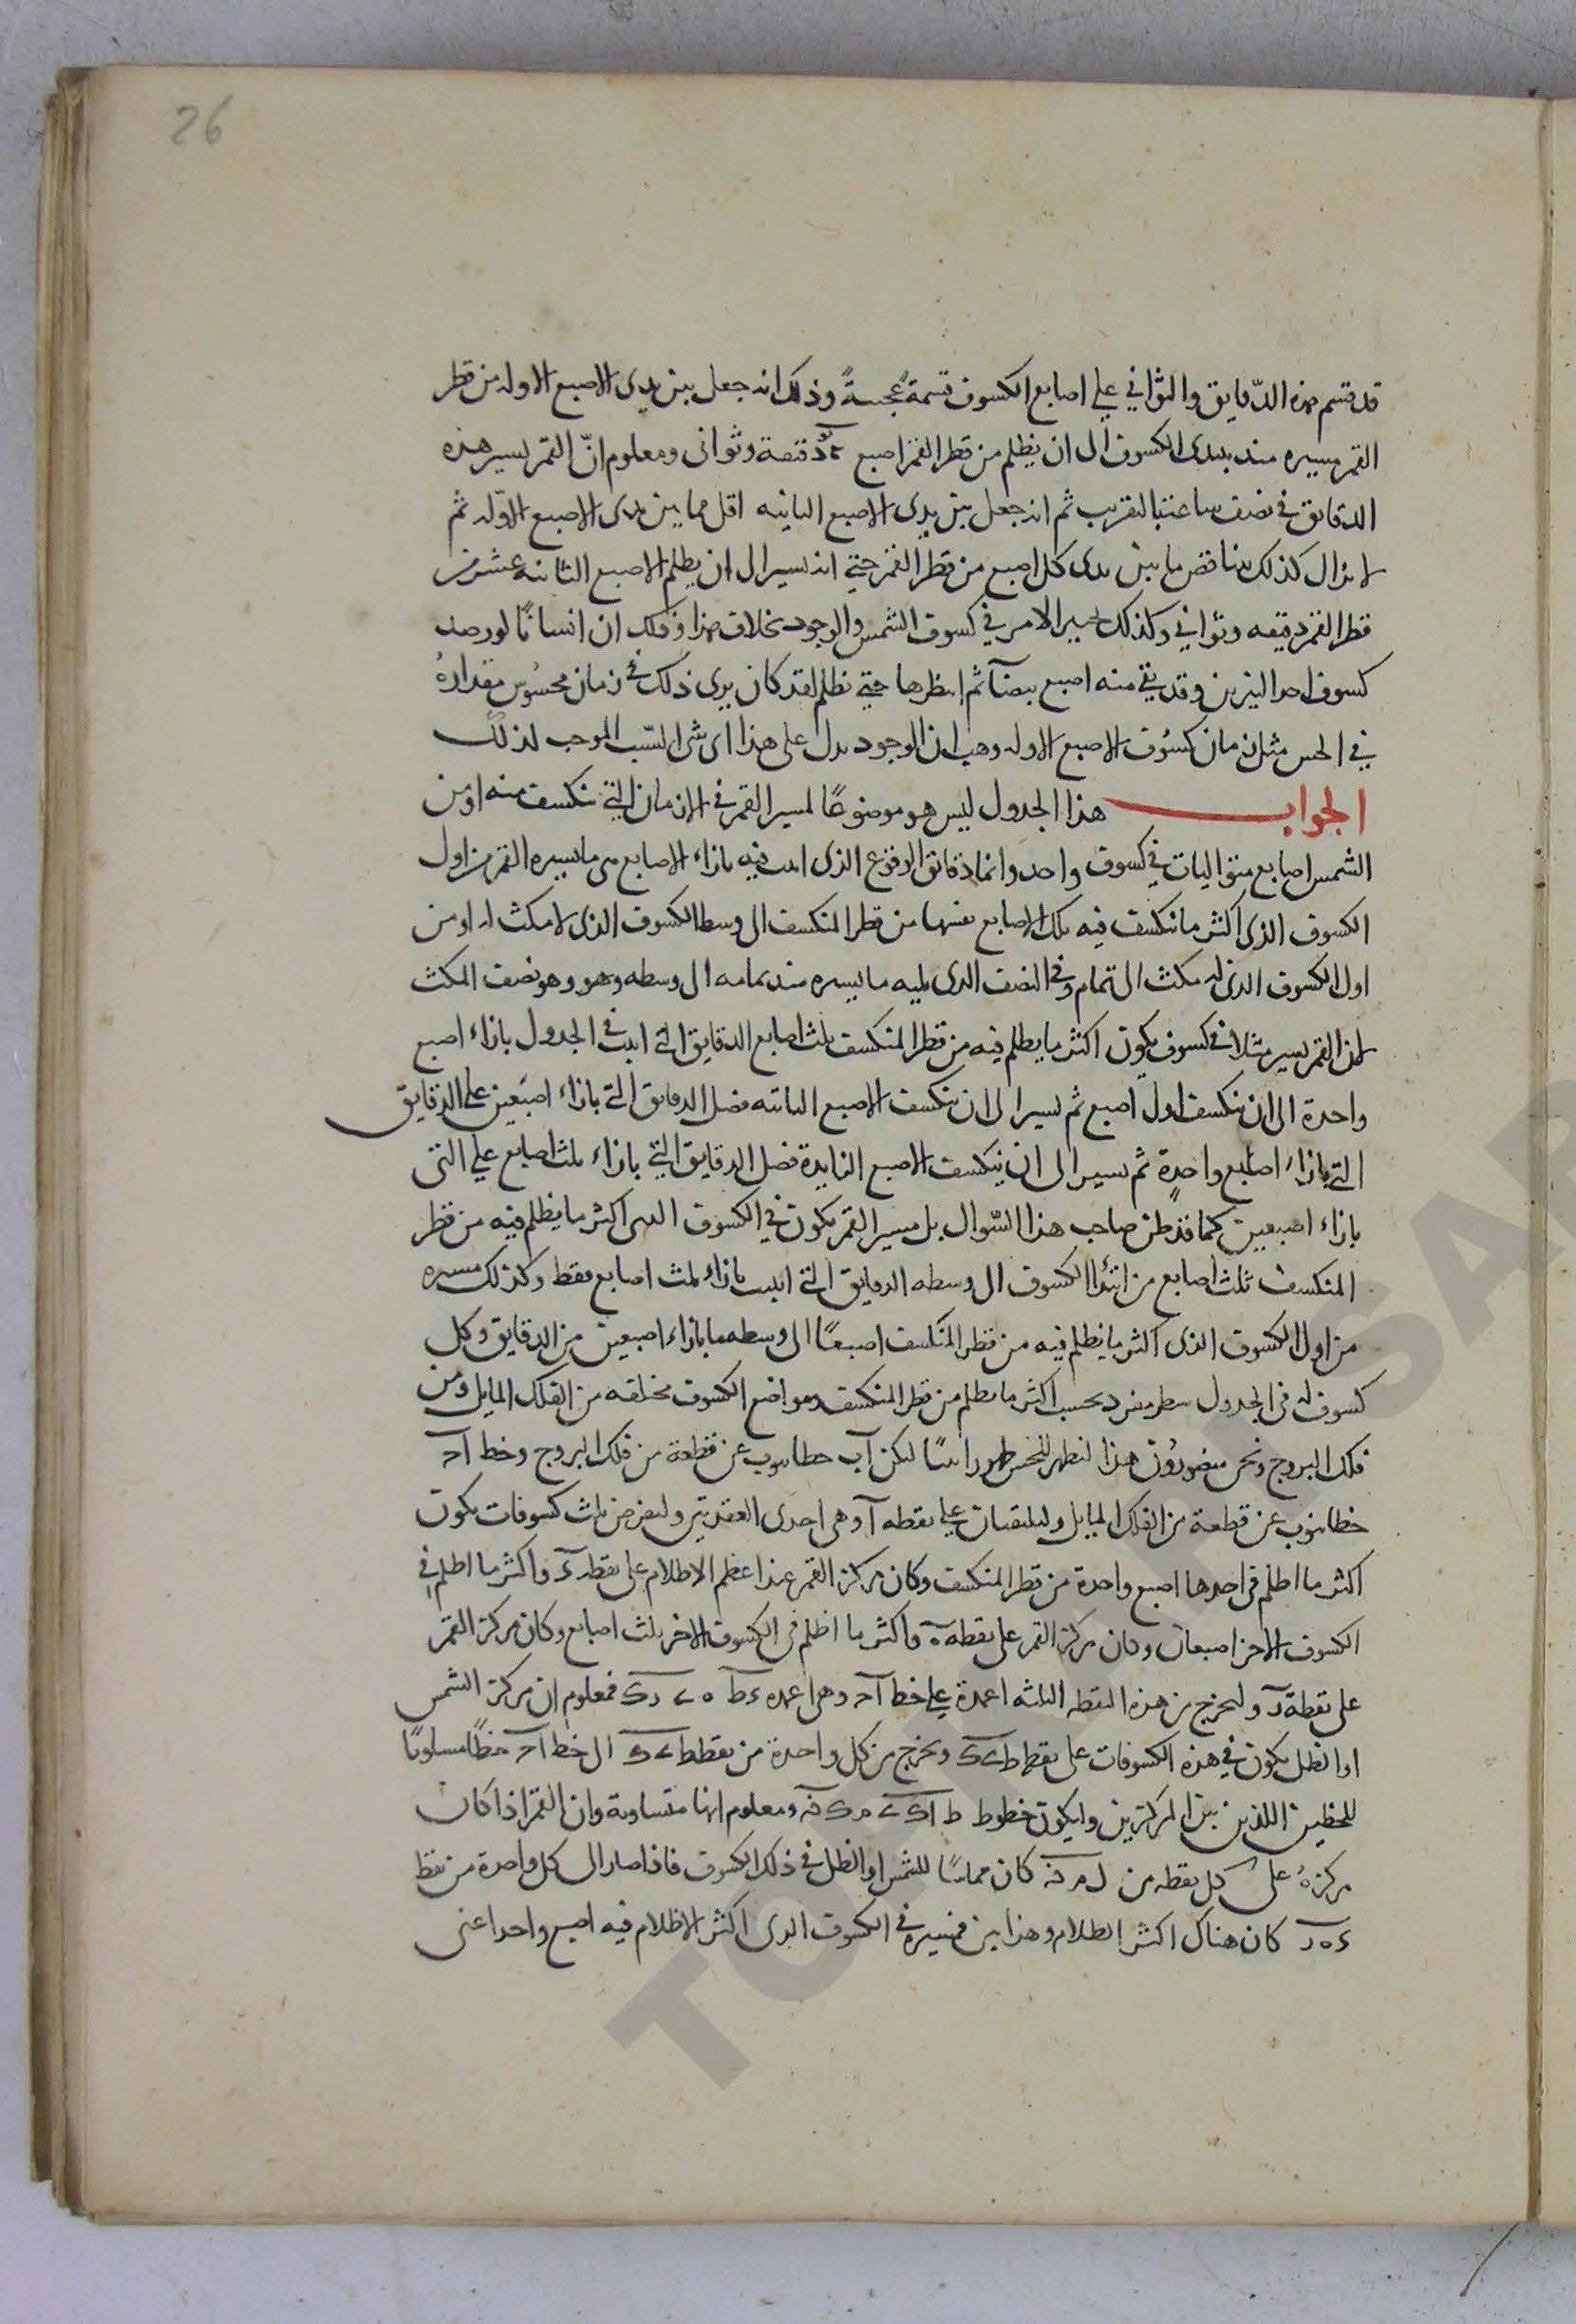 26
قد قسم هذه الدقايق والثواني على اصابع الكسوف قسمة عجيبةً وذلك انه جعل بين يدى الاصبع الاوله من قطر
القمر مسيره منذ يبتدى الكسوف الى ان يظلم من قطر القمر اصبع دقيقة وثوانى ومعلوم انّ القمر يسير هذه
الدقايق فى نصف ساعة بالتقريب ثم انه جعل بين يدى الاصبع الثانيه اقل مما بين يدى الاصبع الاوله ثم
لا يزال كذلك يتناقص ما بين يدى كل اصبع من قطر القمر حتى انه يسير الى ان يظلم الاصبع الثانيه عشر من
قطر القمر دقيقه وثواني وكذلك الامر في كسوف الشمس والوجود بخلاف هذا وذلك ان انسانًا لو رصد
كسوف احد النيرين وقد بقى منه اصبع بيضآ ثم انتظرها حتى تظلم لقد كان يرى ذلك فى زمان محسُوس مقدارهُ
في الحس مثل زمان كسُوف الاصبع الاوله وهب ان الوجود يدل على هذا اى شى السّبب الموجب لذلك
الجواب هذا الجدول ليس هو موضوعًا لمسير القمر فى الازمان التى ينكسف منه او من
الشمس اصابع متواليات في كسوف واحد وانما دقايق الوقوع الذى اثبت فيه بازاء الاصابع هى ما يسيره القمر من اول
الكسوف الذى اكثر ما ينكسف فيه تلك الاصابع بعينها من قطر المنكسف الى وسط الكسوف الذى لا مكث له او من
اول الكسوف الذى له مكث الى تمامه وفى النصف الذى يليه ما يسيره منذ تمامه الى وسطه وهو وهو نصف المكث
لان القمر يسير مثلا فى كسوف يكون اكثر ما يظلم فيه من قطر المنكسف ثلث اصابع الدقايق التى اثبت فى الجدول بازاء اصبع
واحدة الى ان ينكسف اول اصبع ثم يسير الى ان ينكسف الاصبع الثانيه فضل الدقايق التى بازاء اصبَعين على الدقايق
التى بازاء اصابع واحدةٍ ثم يسير الى ان ينكسف الاصبع الزايدة فضل الدقايق التى بازاء ثلث اصابع على التى
بازاء اصبعين كما قد ظن صاحب هذا السّوال بل مسير القمر يكون فى الكسوف الذى اكثر ما يظلم فيه من قطر
المنكسف ثلث اصابع من ابتدا الكسوف الى وسطه الدقايق التى اثبت بازاء ثلث اصابع فقط وكذلك مسيره
من اول الكسوف الذى اكثر ما يظلم فيه من قطر المنكسف اصبعًا الى وسطه ما بازاء اصبعين من الدقايق وكل
كسوف له فى الجدول سطر مفرد بحسب اكثر ما يظلم من قطر المنكسف ومواضع الكسوف مختلفه من الفلك المايل ومن
فلك البروج ونحن مصَورُون هذا ليظهر للحس ليكن آب خطا ينوب عن قطعة من فلك البروج وخط آحـ
خطا ينوب عن قطعة من الفلك المايل وليلتقيان على نقطه آ وهى احدى العقدتين ولنفرض ثلث كسوفات يكون
اكثر ما اظلم فى احدها اصبع واحدة من قطر المنكسف وكان مركز القمر عند اعظم الاظلام على نقطه د واكثر ما اظلم في
الكسوف الاخر اصبعان وكان مركز القمر على نقطه ه واكثر ما اظلم فى الكسوف الاخر ثلث اصابع وكان مركز القمر
على نقطة ز وليخرج من هذه النقطه الثلثه اعمدة على خط آحـ وهى اعمده دط هى زك فمعلوم ان مركز الشمس
او الظل يكون فى هذه الكسوفات على نقط ط ى ك ويخرج من كل واحدة من نقط ط ى ك الى خط آحـ خطًا مساويًا
للخطين اللذين بين المركزين وليكون خطوط ومعلوم انها متساوية وان القمر اذا كان
مركزهُ على كل نقطه من ل م ن كان مماسًا للشمس او الظل فى ذلك الكسوف فاذا صار الى كل واحدة من نقط
د ه ز كان هناك اكثر الظلام وهذا بين فمسيره فى الكسوف الذى اكثر الاظلام فيه اصبع واحد اعنى